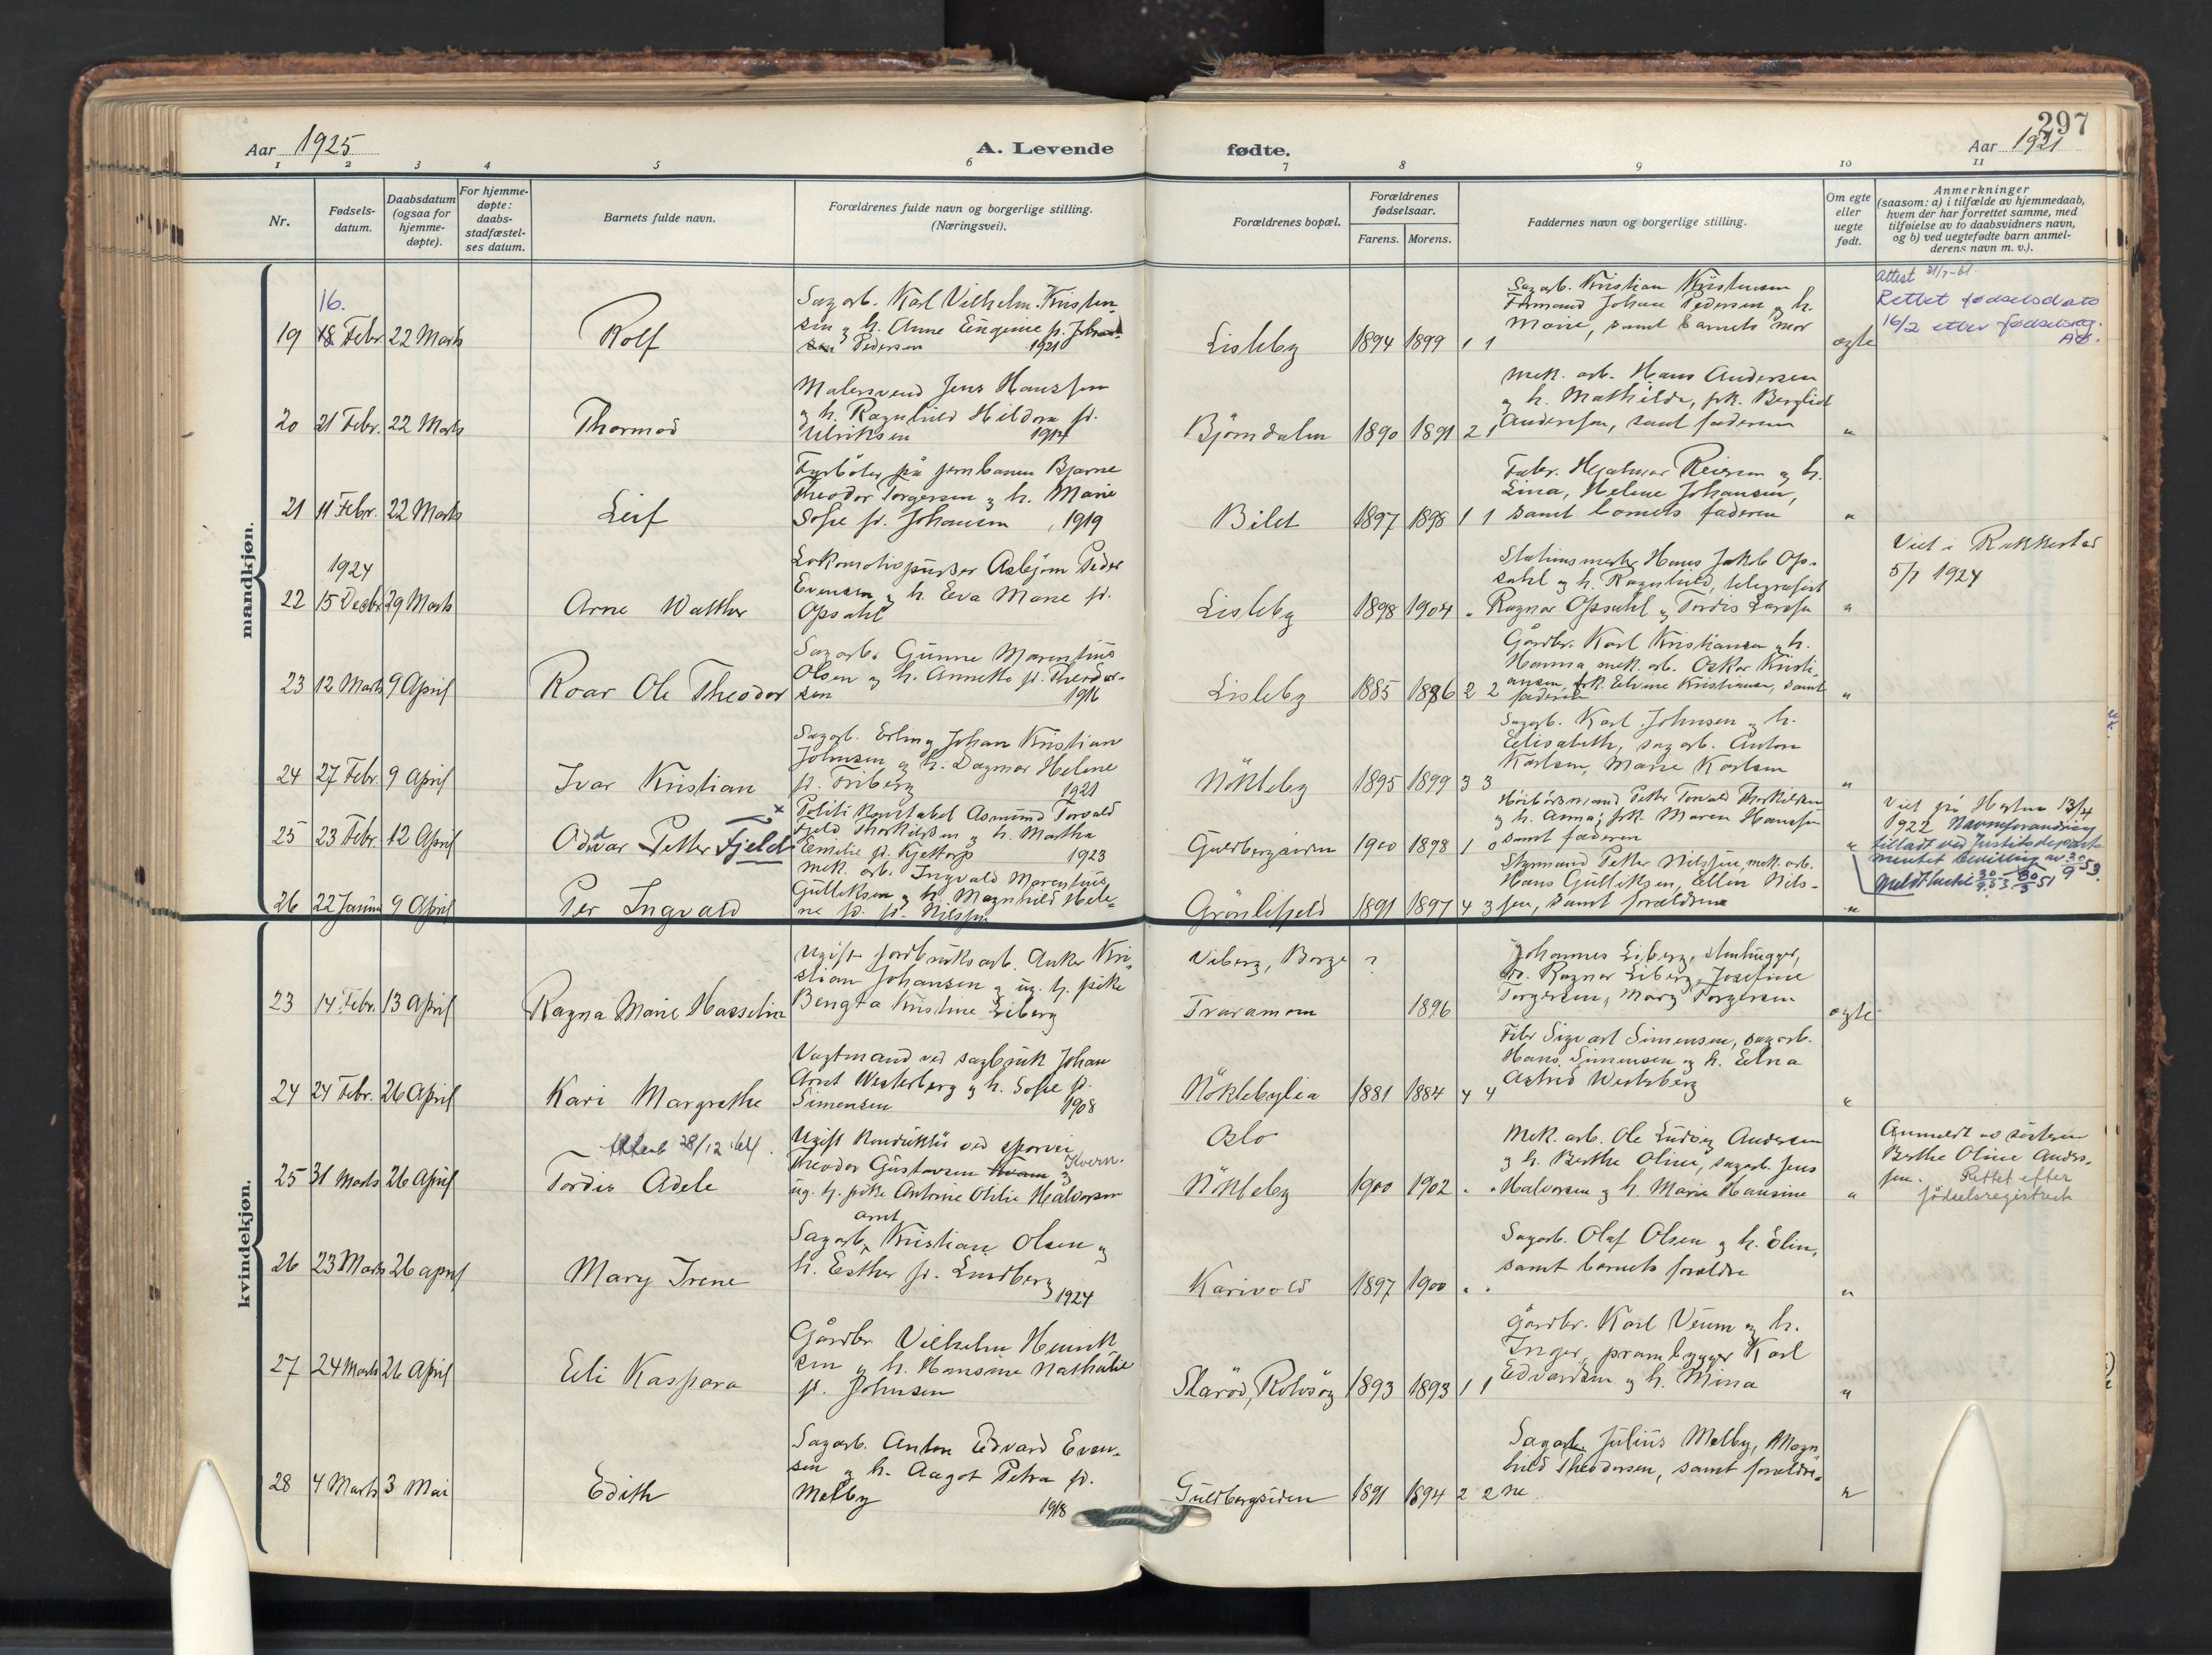 297
Aar 1925
A. Levende
fødte.
Aar 1921
1 2 3 4 5 6 7 8 9 10 11
Nr.
Fødsels-
datum.
Daabsdatum
(ogsaa for
hjemme-
døpte).
For hjemme-
døpte:
daabs-
stadfæstel-
ses datum.
Barnets fulde navn.
Forældrenes fulde navn og borgerlige stilling.
(Næringsvei).
Forældrenes bopæl.
Forældrenes
fødselsaar.
Farens. Morens.
Faddernes navn og borgerlige stilling.
Om egte
eller
uegte
født.
Anmerkninger
(saasom: a) i tilfælde av hjemmedaab,
hvem der har forrettet samme, med
tilføielse av to daabsvidners navn,
og b) ved uegtefødte barn anmel-
derens navn m. v.).
mandkjøn.
16.
19 18 Febr. 22 Marts
Rolf
Sagarb. Karl Vilhelm Kristen-
sen og h. Anne Eugenie f.
Pedersen 1921
Lisleby 1894 1899 1 1
Sagarb. Kristian Kristensen
Formand Johan Pedersen og h.
Marie, samt barnets mor
egte
Attest
Rettet fødselsdato
16/2 etter fødselsreg.
20 21 Febr. 22 Marts
Thormod
Malersvend Jens Hanssen
og h. Ragnhild Hildora f.
Ulriksen 1914
Björndalen 1890 1891 2 1
Mek. arb. Hans Andersen
og h. Mathilde, frk. Bergliot
Anderssen, samt faderen
"
21 11 Febr. 22 Marts
Leif
Fyrböter på jernbanen Bjarne
Theodor Torgersen og h. Marie
Sofie f. Johansen 1919
Bilet 1897 1898 1 1
Fabr. Hjalmar Reiersen og h.
Lina, Helene Johansen,
samt barnets faderen
"
1924
22 15 Decbr 29 Marts
Arne Walther
Lokomotivpusser Asbjörn Peder
Evensen og h. Eva Marie f.
Opsahl
Lisleby 1898 1904 "
Stationsmester Hans Jakob Op-
sahl og h. Ragnhild, telegrafist
Ragnar Opsahl og Tordis
"
Viet i Rakkestad
5/7 1924
23 12 Marts 9 April
Roar Ole Theodor
Sagarb. Gunne Marentius
Olsen og h. Annette f. Theodor-
sen 1916
Lisleby 1885 1886 2 2
Gårdbr. Karl Kristiansen og h.
Hanna, mek. arb. Oskar Kristi-
ansen, frk. Elvine Kristiansen, samt
faderen
"
24 27 Febr 9 April
Ivar Kristian
Sagarb. Erling Johan Kristian
Johnsen og h. Dagmar Helene
f. Friberg 1921
Nökleby 1895 1899 3 3
Sagarb. Karl Johnsen og h.
Elisabeth, sagarb. Anton
Karlsen, Marie Karlsen
"
25 23 Febr 12 April
Oddvar Petter Fjeld
Politikonstabel Asmund Torvald
Fjeld Thorkildsen og h. Martha
Emelie f. Kjettorp 1923
Guldbergsiden 1900 1898 1 0
Petter Torvald Thorkildsen
og h. Anna, frk. Maren Hanssen
samt faderen
"
Viet på 13/4
1922 Navneforandring
tilladt ved Justitsdeparte-
mentet bevilling av 30/9 53
26 22 Januar 9 April
Per Ingvald
Mek. arb. Ingvald Marentius
Gulliksen og h. Magnhild Hele-
ne f. Nilssen
Grönlifjeld 1891 1897 4 3
Styrmand Petter Nilssen, mek. arb.
Hans Gulliksen, Ellen Nils-
sen, samt forældrene
"
kvindekjøn.
23 14 Febr. 13 April
Ragna Marie Hasselin
Ugift jordbruksarb. Anker Kri-
stian Johansen og ug. tj. pike
Bengta Kristine Liberg
Viberg, Borge ?
Traramoen 1896
Johannes Liberg, stenhugger,
Ragnar Liberg, Josefine
Torgersen, Mary Torgersen
24 24 Febr. 26 April
Kari Margrethe
Vagtmand ved sagbruk Johan
Arnt Westerberg og h. Sofie f.
Simensen 1908
Nöklebylia 1881 1884 4 4
Sigvart Simensen, sagarb.
Hans Simensen og h. Edna
Astrid Westerberg
"
Attest 28/12-64.
25 31 Marts 26 April
Tordis Adele
Ugift konduktör ved sporvei
Theodor Gustavsen Kvern- og
ug. tj. pike Antonie Otilie Halvorsen
Oslo
Nökleby 1900 1902 " "
Mek. arb. Ole Ludvig Andersen
og h. Berthe Oline, sagarb. Jens
Halvorsen og h. Marie Hansine
"
Anmeldt av söster
Berthe Oline Anders-
sen. Rettet efter
födselsregistret
26 23 Marts 26 april
Mary Irene
Arnt
Sagarb. Kristian Olsen og
h. Esther f. Lundberg
1924
Karivold 1897 1900 " "
Sagarb. Olaf Olsen og h. Elin,
samt barnets forældre
"
27 24 Marts 26 April
Eli Kaspara
Gårdbr. Vilhelm Henrik-
sen og h. Hansine Nathalie
f. Johnsen
Skaröd, Rolvsöy 1893 1893 1 1
Gårdbr. Karl Veum og h.
Inger, prambygger Karl
Edvardsen og h. Mina
"
28 4 Marts 3 Mai
Edith
Sagarb. Anton Edvard Even-
sen og h. Aagot Petra f.
Melby 1918
Guldbergsiden 1891 1894 2 2
Sagarb. Julius Melby, Magn-
hild Theodorsen, samt forældre-
ne
"